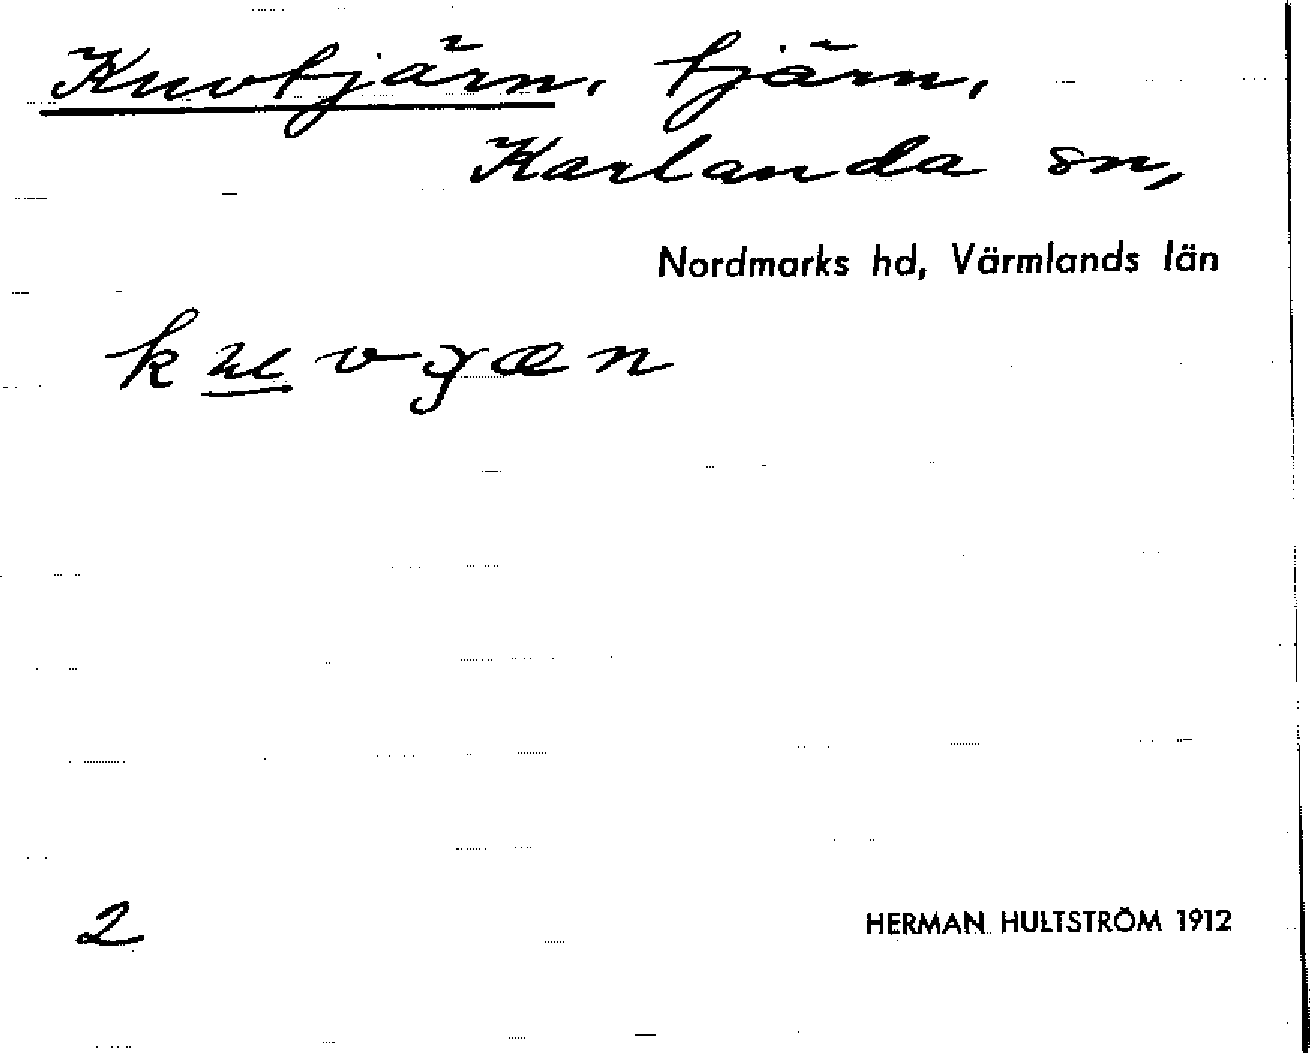 Kuvtjärn, tjärn,
Karlanda sn,
Nordmarks hd, Värmlands län
2
HERMAN HULTSTRÖM 1912